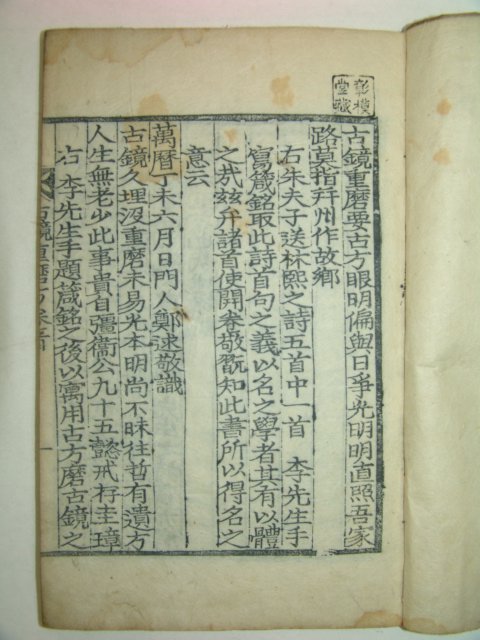 古鏡重磨要古方眼明偏與日爭光明明直照吾家
路莫指幷州作故鄉
右朱夫子送林熙之詩五首中一首 李先生手
寫箴銘取此詩首句之義以名之學者其有以體
之哉玆弁諸首使開卷敬翫知此書所以得名之
意云
萬曆丁未六月日門人鄭逑敬識
古鏡久埋沒重磨未易光本明尚不昧往哲有遺方
人生無老少此事貴自彊衛公九十五懿戒存圭璋
右 李先生手題箴銘之後以寓用古方磨古鏡之
古鏡重磨方